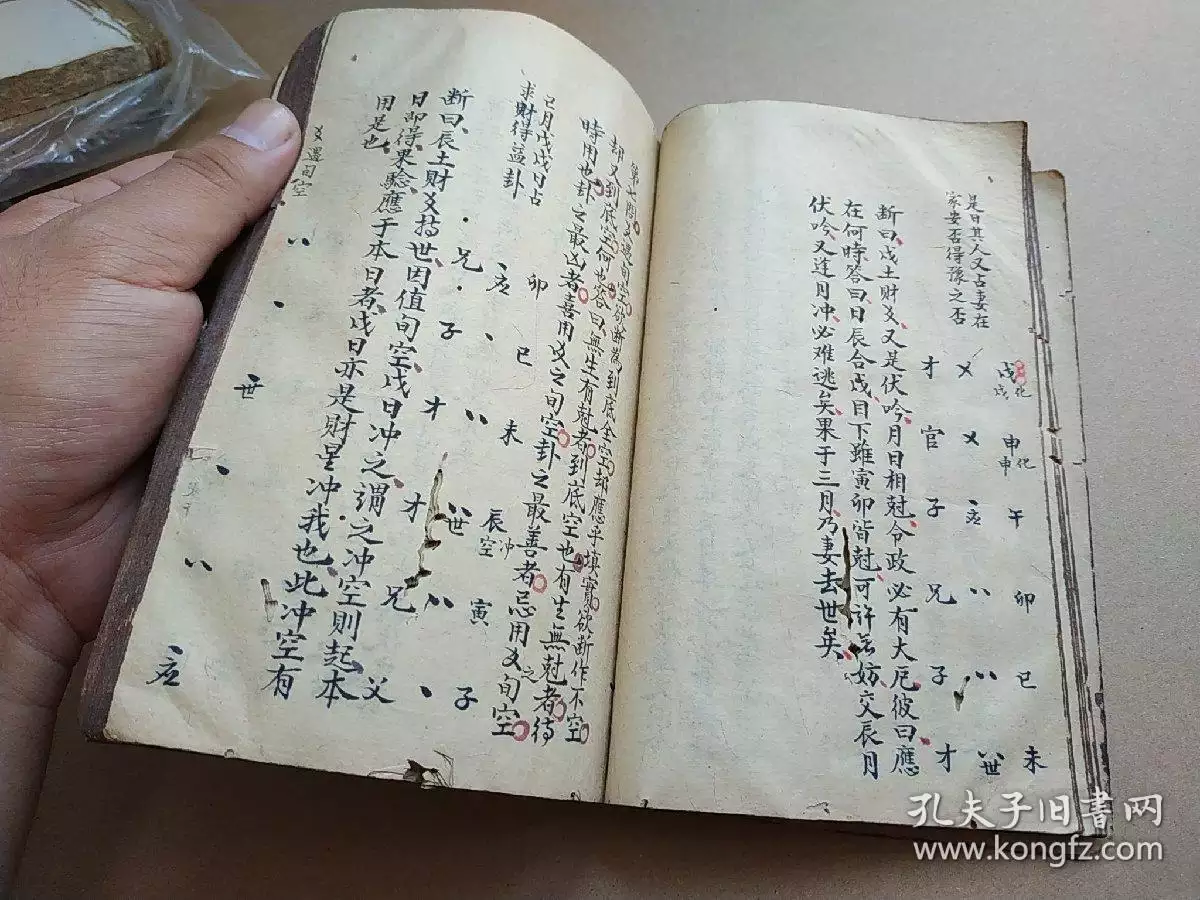 是日其人又占妻在
家安否得豫之否
戌化
戌
才
申化
申
官
午
子 应
卯
兄
巳
子
未
才 世
断曰戌土财爻又是伏吟月日相尅令政必有大厄彼曰應
在何時答曰日辰合戌目下雖寅卯皆尅可許無妨交辰月
伏吟又逢月冲必难逃矣果于三月乃妻去世矣
却又到底空何也答曰無生有尅者到底空也有生無尅者待
時用也卦之最凶者喜用爻之旬空卦之最善者忌用爻之旬空
巳月戊戌日占
求財得益卦
卯
兄 应
巳
子
未
才
辰空冲
才 世
寅
兄
子
父
断曰辰土財爻持世因值旬空戌日冲之謂之冲空則起本
日即得果驗應于本日者戌日亦是財星冲我也此冲空有
用是也
爻遇旬空
世
应
孔夫子旧書网
www.kongfz.com